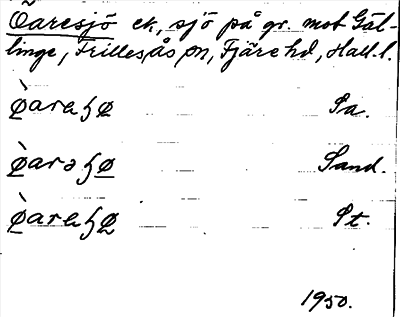 Öaresjö ek, sjö på gr. mot Gäl-
linge, Frillesås sn, Fjäre hd, Hall. l.
Ø̀areɧø Sa.
Ø̀arəɧø Sand.
Ø̀areɧø St.
1950.